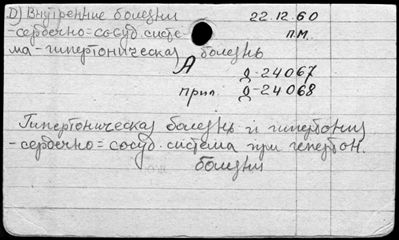 D) Внутренние болезни 22.12.60
-сердечно=сосуд. систе- п.м.
ма-гипертоническая болезнь
А д-24067
прил. д-24068
Гипертоническая болезнь и гипертония
-сердечно=сосуд. система при гепертон.
болезни